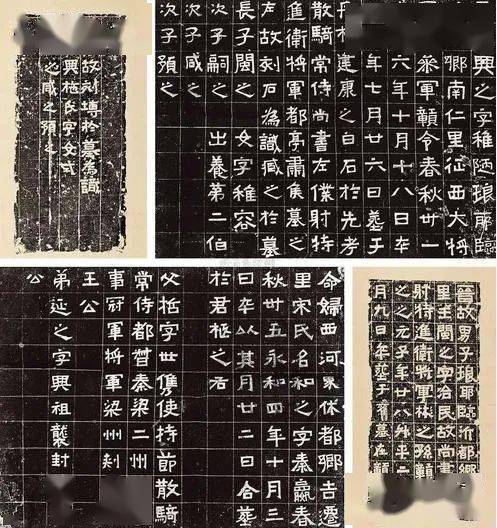 興之字稚陋琅耶臨
鄉南仁里征西大將
參軍贛令春秋卅一
六年十月十八日卒
年七月廿六日葬于
建康之白石於先考
散騎常侍尚書左僕射特
進衛將軍都亭肅侯墓之
左故刻石為識臧之於墓
長子閩之 女字稚容
次子嗣之 出養第二伯
次子咸之
次子預之
命婦西河界休都鄉吉遷
里宋氏名和之字秦嬴春
秋卅五永和四年十月三
日卒以其月廿二日合葬
於君柩之右
父哲字世儁使持節散騎
常侍都督秦梁二州
事冠軍將軍梁州刺
王公
弟延之字興祖襲封
公
故刻塼於墓為識
興柩氏字女式
之咸之預之
晉故男子琅耶臨沂都鄉
里王閩之字冶民故尚書
射特進衛將軍彬之孫贛
之之元子年廿八升平二
月九日卒葬于舊墓在贛